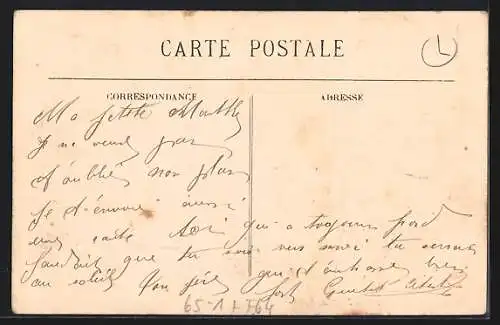 CARTE POSTALE
CORRESPONDANCE
ADRESSE
Ma petite
Je ne veux pas
t'oublier non plus
Je t'envoie aussi
une carte toi qui a toujours froid
faudrait que tu sois avec moi tu serais
au soleil Ton père qui t'embrasse bien
fort
65-1 + 764
L